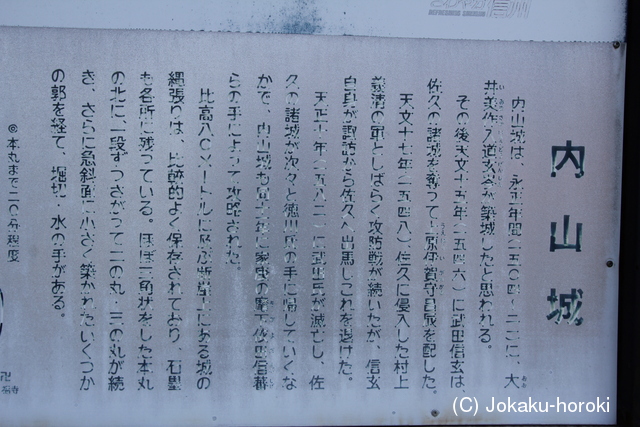 内山城
内山城は、永正年間(一五〇四〜二一)に、大
井美作入道玄岑が築城したと思われる。
その後天文十五年(一五四六)に武田信玄は、
佐久の諸城を奪って上原伊賀守昌辰を配した。
天文十七年(一五四八)、佐久に侵入した村上
義清の軍としばらく攻防戦が続いたが、信玄
自身が諏訪から佐久へ出馬しこれを退けた。
天正十年(一五八二)に武田氏が滅亡し、佐
久の諸城が次々と徳川氏の手に帰していくな
かで、内山城も同十年に家康の臣
らの手によって攻略された。
比高八〇メートルに及ぶ断崖上にある城の
縄張りは、比較的よく保存されており、石塁
も各所に残っている。ほぼ三角状をした本丸
の北に、一段ずつさがって二の丸、三の丸が続
き、さらに急斜面に小さく築かれたいくつか
の郭を経て、堀切、水の手がある。
◎本丸まで二〇分程度
(C) Jokaku-horoki